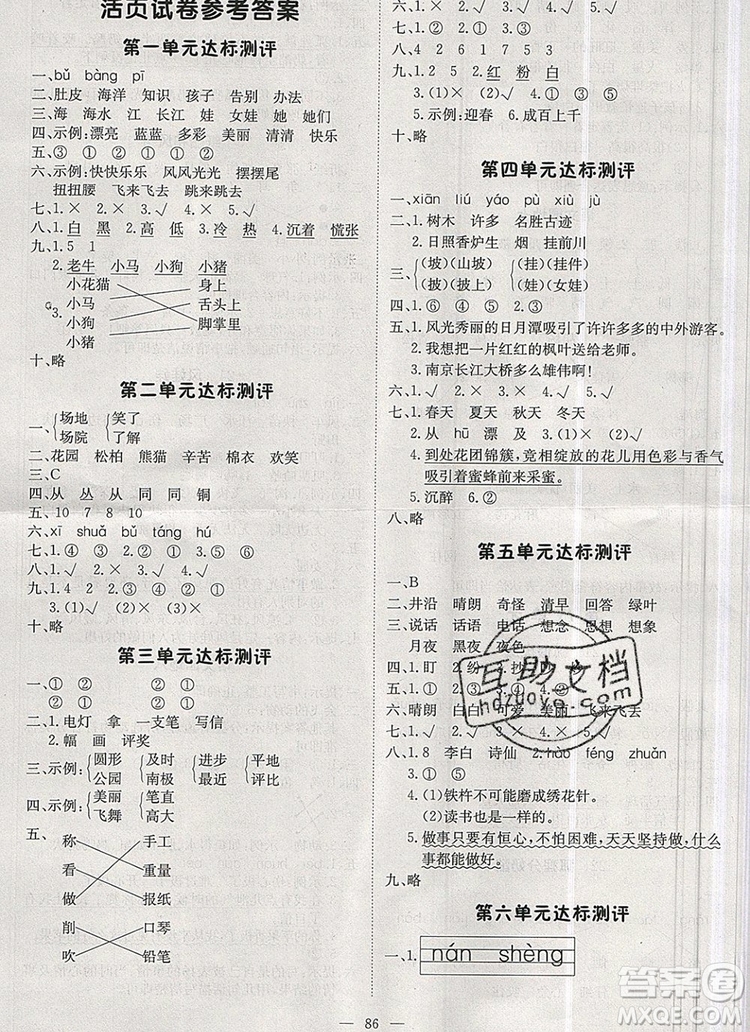 活页试卷参考答案
第一单元达标测评
一、bǔ bàng pī
二、肚皮 海洋 知识 孩子 告别 办法
三、海 海水 江 长江 娃 女娃 她 她们
四、示例:漂亮 蓝蓝 多彩 美丽 清清 快乐
五、③ ② ① ④
六、示例:快快乐乐 风风光光 摆摆尾
扭扭腰 飞来飞去 跳来跳去
七、1.× 2.√ 3.× 4.× 5.√
八、1.白 黑 2.高 低 3.冷 热 4.沉着 慌张
九、1.5 1
2.老牛 小马 小狗 小猪
3.
小花猫 身上
小马 舌头上
小狗 脚掌里
小猪
十、略
第二单元达标测评
一、场地 笑了
场院 了解
二、花园 松柏 熊猫 辛苦 棉衣 欢笑
三、C
四、从 丛 从 同 同 铜
五、10 7 8 10
六、xī shuǎ bǔ táng hú
七、1.④ ③ 2.② ① ④
八、1.√ 2.√ 3.× 4.×
九、1.4 2.② ① ④ ③
3.(1)√ (2)× (3)√
十、略
第三单元达标测评
一、② ① ② ①
② ① ② ①
二、1.电灯 拿 一支笔 写信
2.幅 画 评奖
三、示例: 圆形 及时 进步 平平
公园 南极 最近 评比
四、示例: 美丽 笔直
飞舞 高大
五、
称 手工
看 重量
做 报纸
削 口琴
吹 铅笔
六、1.② 2.① 3.①
七、1.√ 2.× 3.× 4.× 5.√
八、4 2 6 1 7 5 3
九、1.2 5 2.红 粉 白
3.(1)× (2)√ 4.(1)× (2)√
5.(1)示例:迎春 6.成百上千
十、略
第四单元达标测评
一、xiān liú yáo pù xiù jù
二、1.树木 许多 名胜古迹
2.日照香炉生 烟 挂前川
三、(坡)(山坡) (挂)(挂件)
(披)(披上) (娃)(女娃)
四、1.① ⑥ ④ ⑤ 2.③
五、1.风光秀丽的日月潭吸引了许许多多的中外游客。
2.我想把一片红红的枫叶送给老师。
3.南京长江大桥多么雄伟啊!
六、1.√ 2.× 3.× 4.√
七、1.春天 夏天 秋天 冬天
2.从 hū 漂 及 3.①
4.到处花团锦簇,竞相绽放的花儿用色彩与香气
吸引着蜜蜂前来采蜜。
5.沉醉 6.②
八、略
第五单元达标测评
一、B
二、井沿 晴朗 奇怪 清早 回答 绿叶
三、说话 话语 电话 想念 思想 想象
月夜 黑夜 夜色
四、1.盯 2.纷
五、1.① ②
六、晴朗 白白 可爱 美丽 飞来飞去
七、1.× 2.√ 3.× 4.√
八、1.李白 诗仙 2.hào féng zhuǎn
3.① ⑤
4.(1)铁杵不可能磨成绣花针。
(2)读书也是一样的。
5.做事只要有恒心,不怕困难,天天坚持做,什么
事都能做好。
九、略
第六单元达标测评
一、1.nán shèng
互助文档
hdzuoye.com
86
答案圈
MXQE.COM